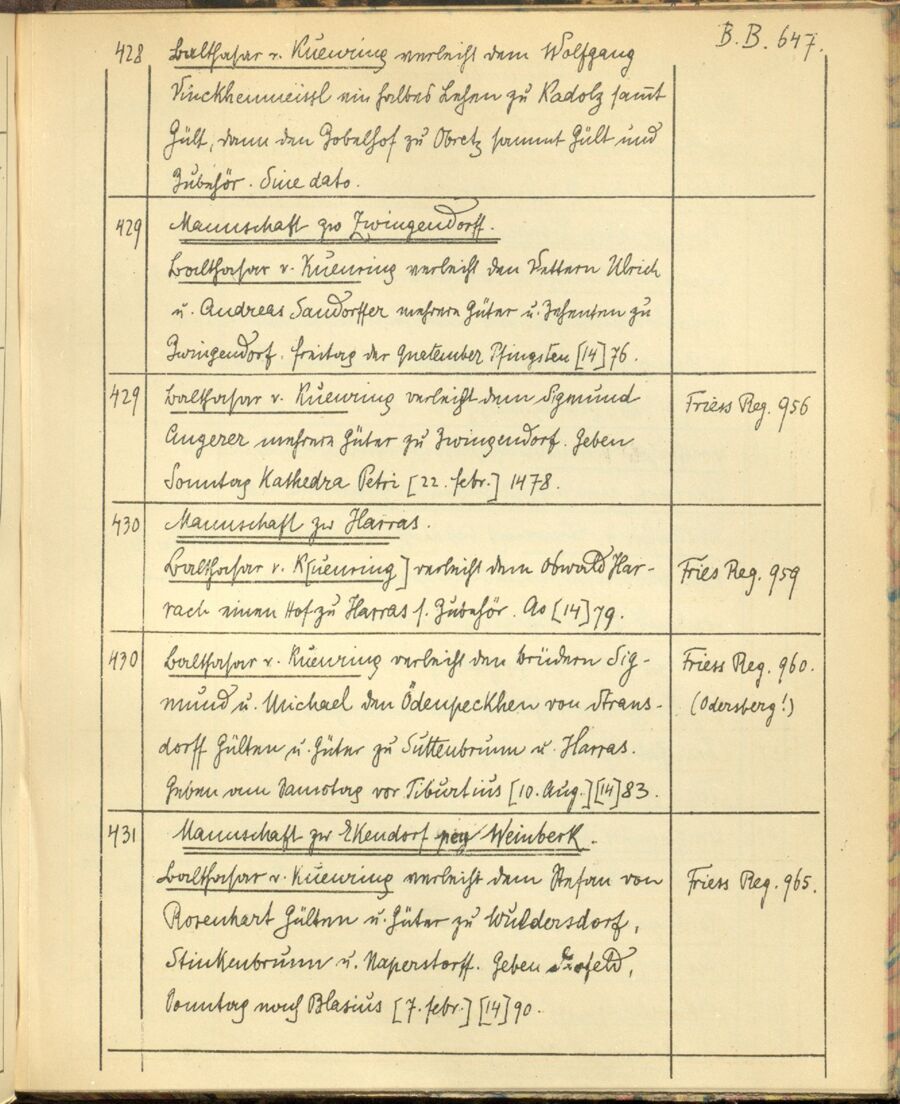 B. B. 647.
428 Balthasar v. Kuenring verleiht dem Wolfgang
Vinckhenmeissl ein halbes Lehen zu Kadolz sam̅t
Gült, dann den Gobelhof zu Obretz sammt Gült und
Zubehör. Sine dato.
429 Mannschaft zw Zwingendorff.
Balthasar v. Kuenring verleiht den Vettern Ulrich
u. Andreas Sandorffer mehrere Güter u. Zehenten zu
Zwingendorf. Freitag der Quetember Pfingsten [14]76.
429 Balthasar v. Kuenring verleiht dem Sigmund Friess Reg. 956
Angerer mehrere Güter zu Zwingendorf. Geben
Sonntag Kathedra Petri [22. Febr.] 1478.
430 Mannschaft zw Harras.
Balthasar v. K[uenring] verleiht dem Oswald Har- Fries Reg. 959
rach einen Hof zu Harras s. Zubehör. Ao [14]79.
430 Balthasar v. Kuenring verleiht den Brüdern Sig- Friess Reg. 960.
mund u. Michael den Ödenpeckhen von Strans- (Odersberg!)
dorff Gülten u. Güter zu Suttenbrunn u. Harras.
Geben am Samstag vor Tiburtius [10. Aug.] [14]83.
431 Mannschaft zw Ekendorf pey Weinberk.
Balthasar v. Kuenring verleiht dem Stefan von Friess Reg. 965.
Rosenhart Gülten u. Güter zu Wuldersdorf,
Stinkenbrunn u. Naperstorff. Geben Seefeld,
Sonntag nach Blasius [7. Febr.] [14]90.